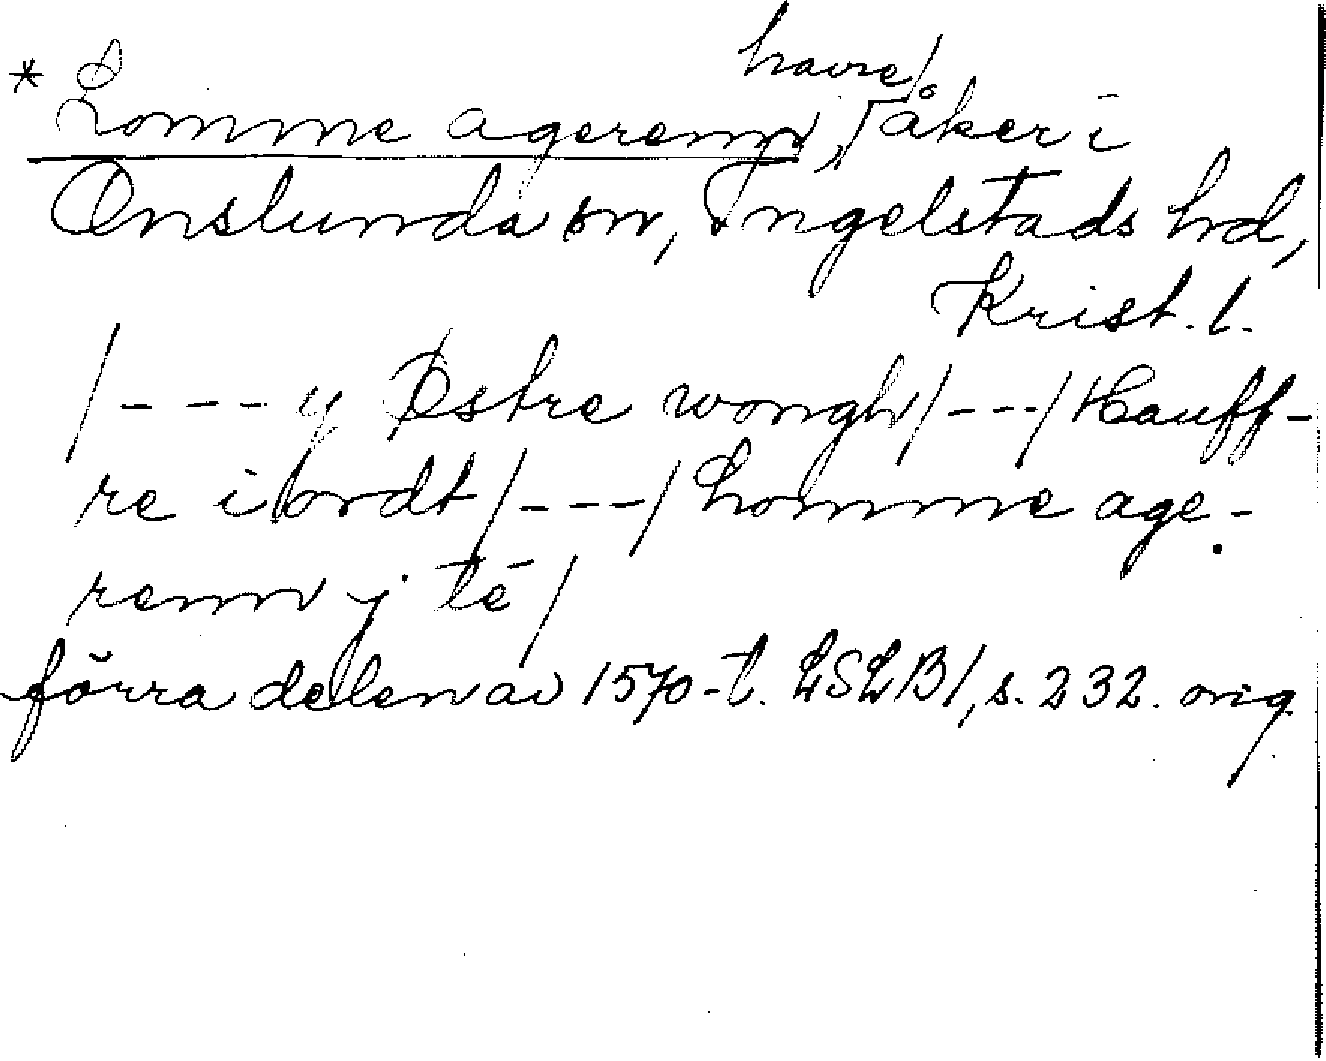 havre/
* Lomme ageremn, åker i
Onslunda sn, Ingelstads hd,
Krist. l.
/---y Østre wongh/---/Hauff-
re iordt/---/Lomme age-
renn j té/
förra delen av 1570-t. LSLB1, s. 232. orig.